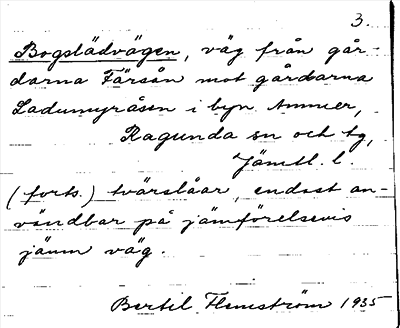 3.
Bogslädvägen, väg från går-
darna Färsån mot gårdarna
Ladumyråsen i byn Ammer,
Ragunda sn och tg,
Jämtl. l.
(forts.) tvärslåar, endast an-
vändbar på jämförelsevis
jämn väg.
Bertil Flemström 1935